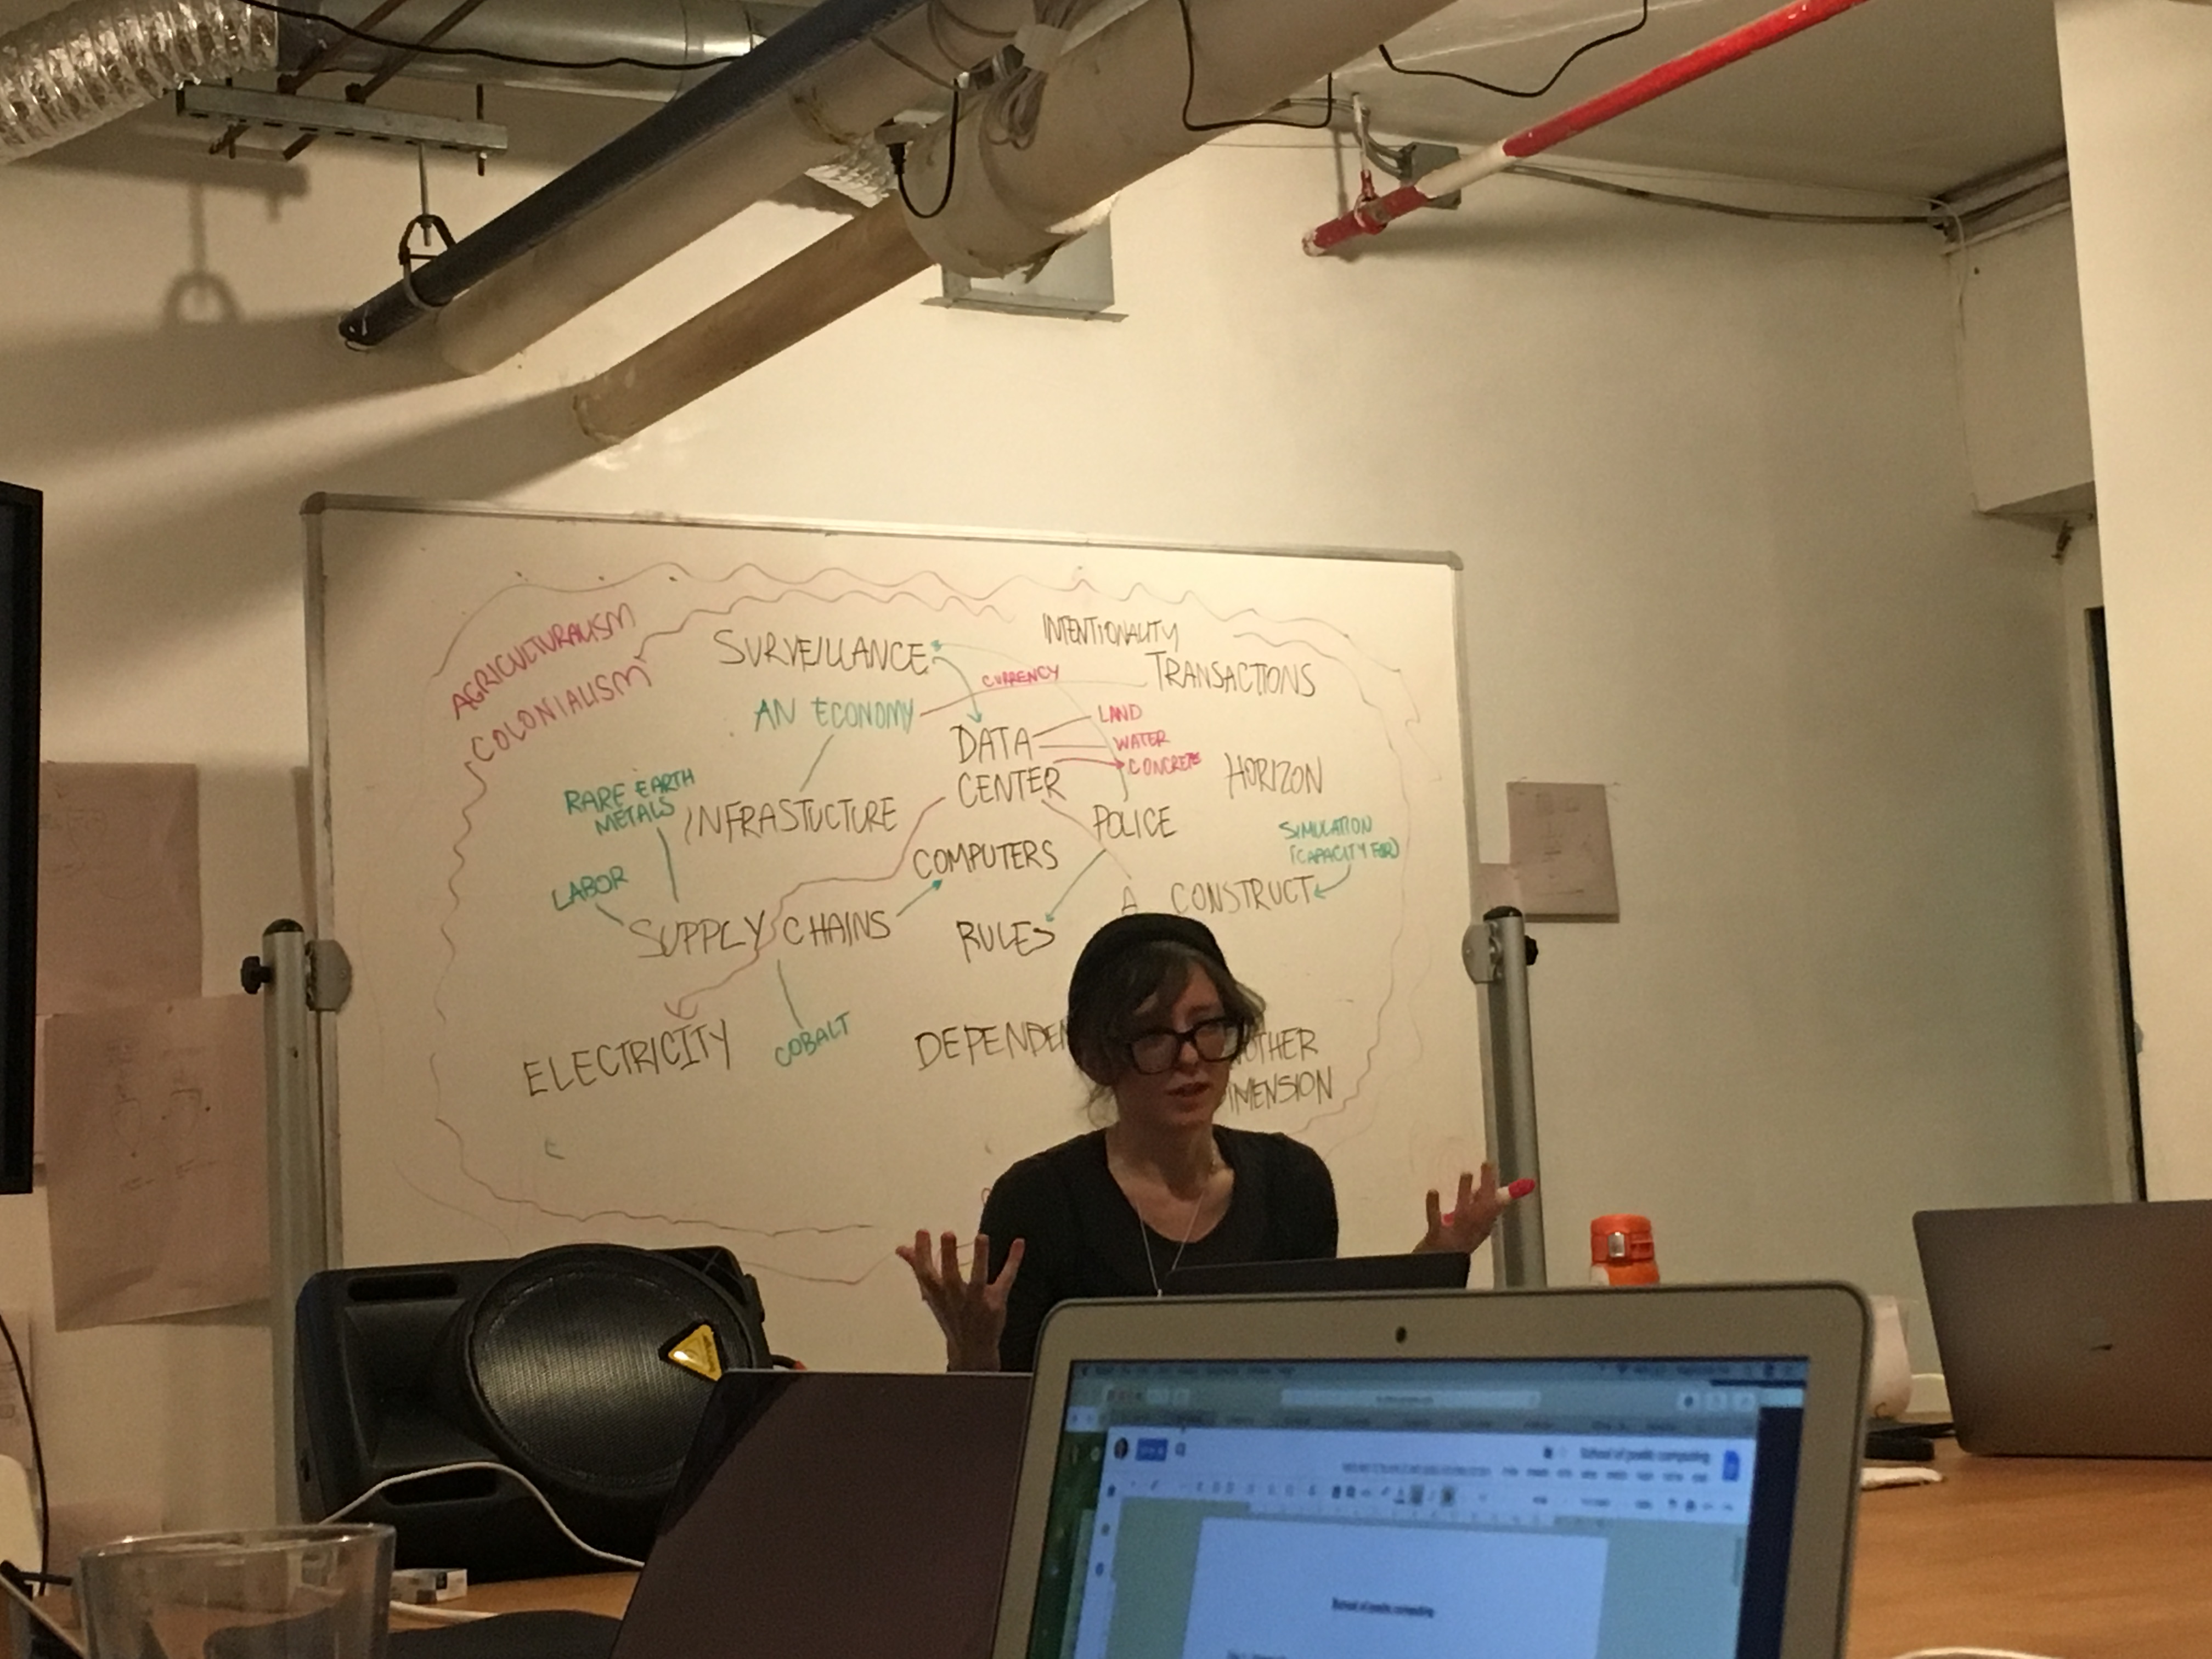 AGRICULTURALISM
COLONIALISM
SURVEILLANCE
INTENTIONALITY
TRANSACTIONS
CURRENCY
AN ECONOMY
DATA
CENTER
LAND
WATER
CONCRETE
HORIZON
RARE EARTH
METALS
INFRASTUCTURE
POLICE
COMPUTERS
SIMULATION
(CAPACITY FOR)
LABOR
SUPPLY CHAINS
RULES
A CONSTRUCT
ELECTRICITY
COBALT
DEPENDEN
OTHER
IMENSION
School of poetic computing
School of poetic computing